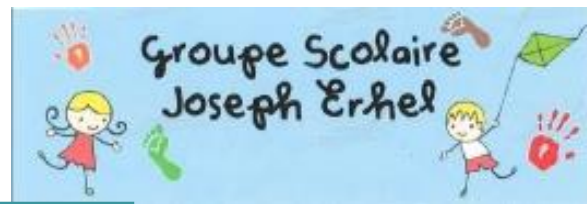 Groupe Scolaire
Joseph Erhel